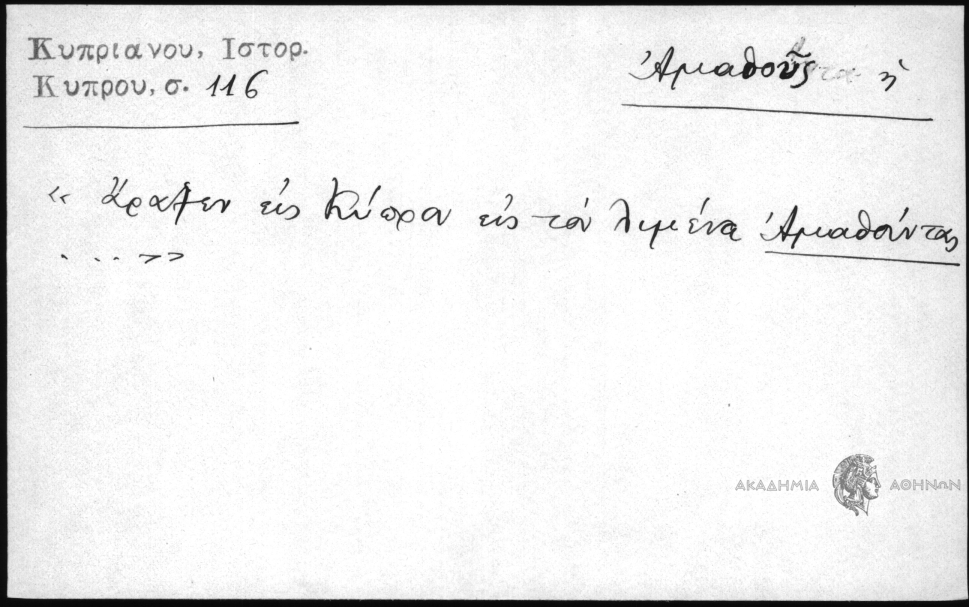 Κυπριανου, Ιστορ.
Κυπρου, σ. 116
Ἀμαθοῦς ἡ
« ἄραξεν εἰς Κύπρον εἰς τὸν λιμένα Ἀμαθούντας
. . . . »
ΑΚΑΔΗΜΙΑ ΑΘΗΝΩΝ